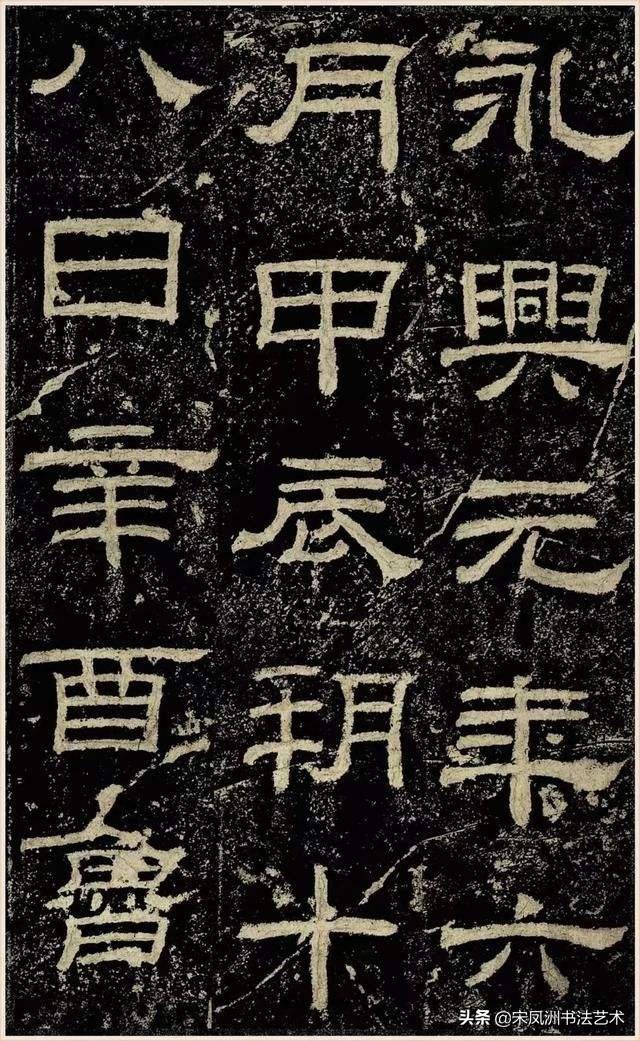 永興元年六
月甲辰朔十
八日辛酉魯
头条 @宋凤洲书法艺术